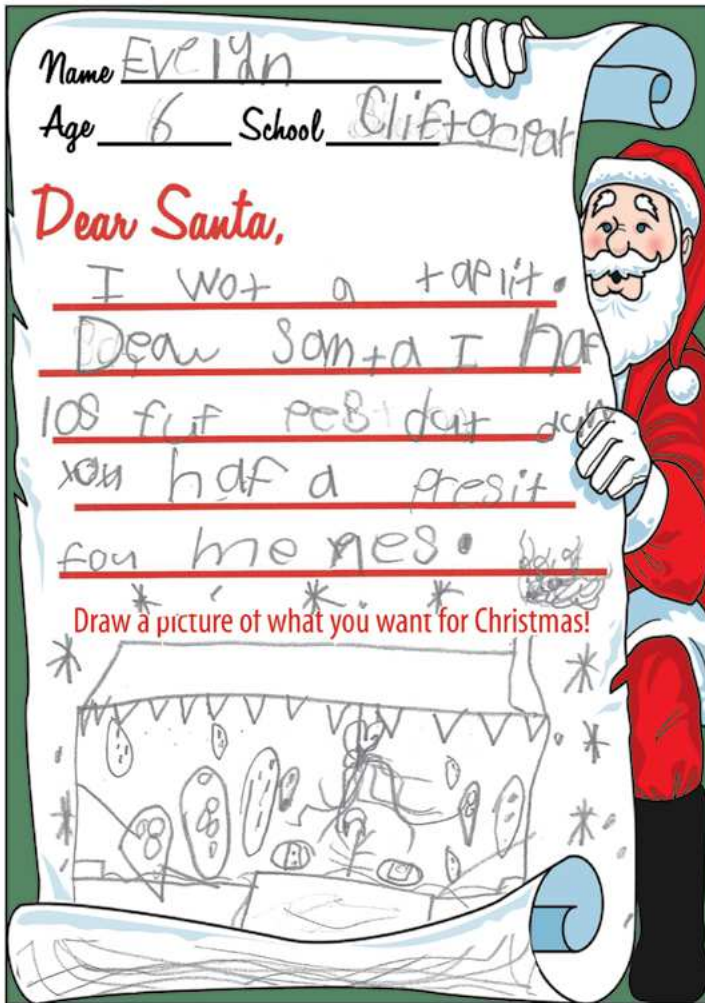 Name Evelyn
Age 6 School Cliftonpar
Dear Santa,
I wot a taplit.
Dear Santa I haf
los fuf
you haf a presit
fou me
Draw a picture of what you want for Christmas!